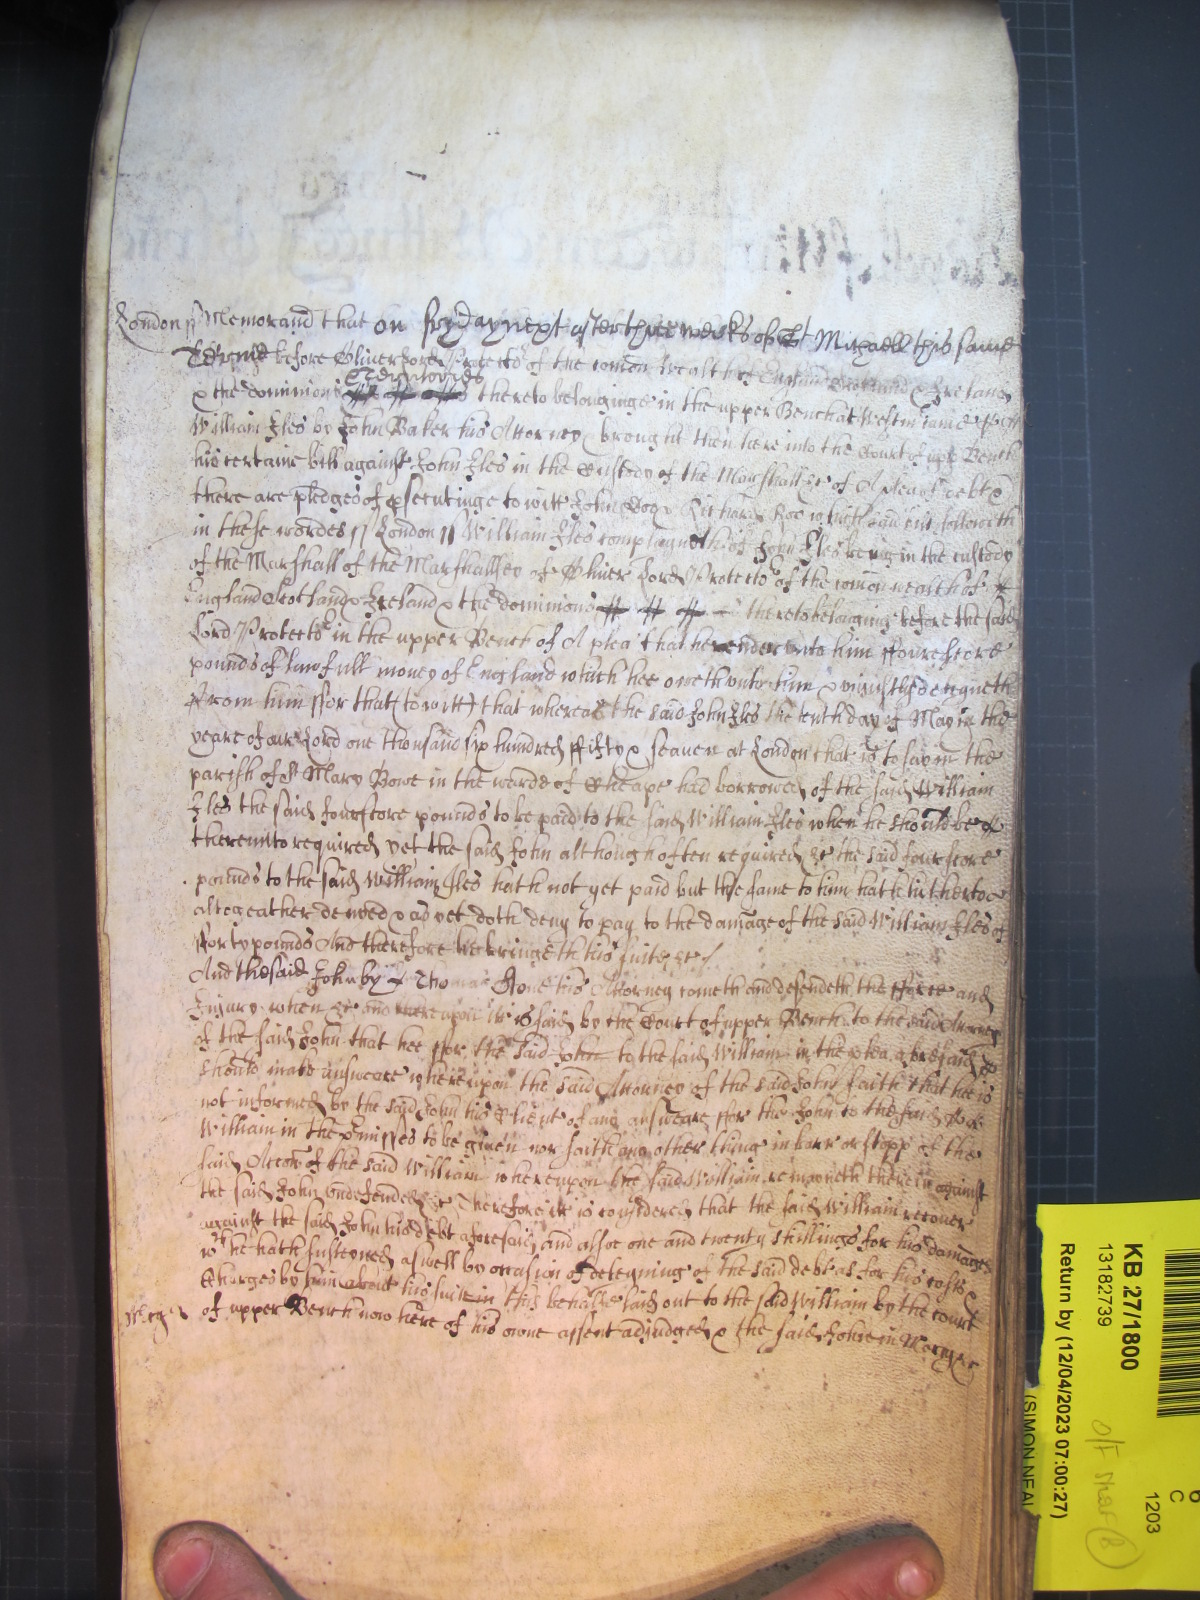 London ss Memorand that on fryday next after three weeks of St Michaell this same
Terme before Oliver Lord Protector of the comon wealth of England Scotland & Ireland
Territories
& the dominions thereto belonginge in the upper Bench at Westm came
William Iles by John Baker his Attorney & brought then here into the Court of upp Bench
his certaine bill against John Iles in the Custody of the Marshall &c of A plea of debt &
there are pledges of psecutinge to witt John Doo & Richard Roo which said bill followeth
in these wordes ss London ss William Iles complayneth of John Iles being in the custody
of the Marshall of the Marshallsey of Oliver Lord Protector of the comon wealth of
England Scotland & Ireland & the dominions thereto belonging before the said
Lord Protector in the upper Bench of A plea that he render unto him ffourescore
pounds of lawfull money of England which hee oweth unto him & uniustly deteyneth
From him ffor that (to witt) that whereas the said John Iles the tenth day of May in the
yeare of our Lord one thousand six hundred ffifty & seaven at London that is to say in the
parish of St Mary Bowe in the warde of Cheape had borrowed of the said William
Iles the said fourscore pounds to be paid to the said William Iles when he should be
thereunto required yet the said John although often required &c the said fourscore
pounds to the said William Iles hath not yet paid but the same to him hath hithertoe
altogeather denied & as yet doth deny to pay to the damage of the said William Iles of
fforty pounds And therefore he bringeth his suite &c
And the said John by Thomas Stone his Attorney cometh and defendeth the fforce and
Injury when &c and thereupon it is said by the Court of upper Bench to the said Attorney
of the said John that hee ffor the said John to the said William in the plea aforesaid
should make answeare whereupon the said Attorney of the said John saith that he is
not informed by the said John his Client of any answeare ffor the John to the said
William in the pmisses to be given nor saith any other thing in barr or stopp of the
said Accon of the said William whereupon the said William remayneth therein against
the said John undefended &c Therefore it is considered that the said William recover
against the said John his debt aforesaid and alsoe one and twenty shillings for his damages
wch he hath susteyned aswell by occasion of deteyning of the said debt as for his costs &
Charges by him about his suite in this behalfe laid out to the said William by the court
of upper Bench now here of his owne assent adjudged & the said John in Mercy &c
Mercy
KB 27/1800
13182739
Return by (12/04/2023 07:00:27)
(SIMON NEAL
C
1203